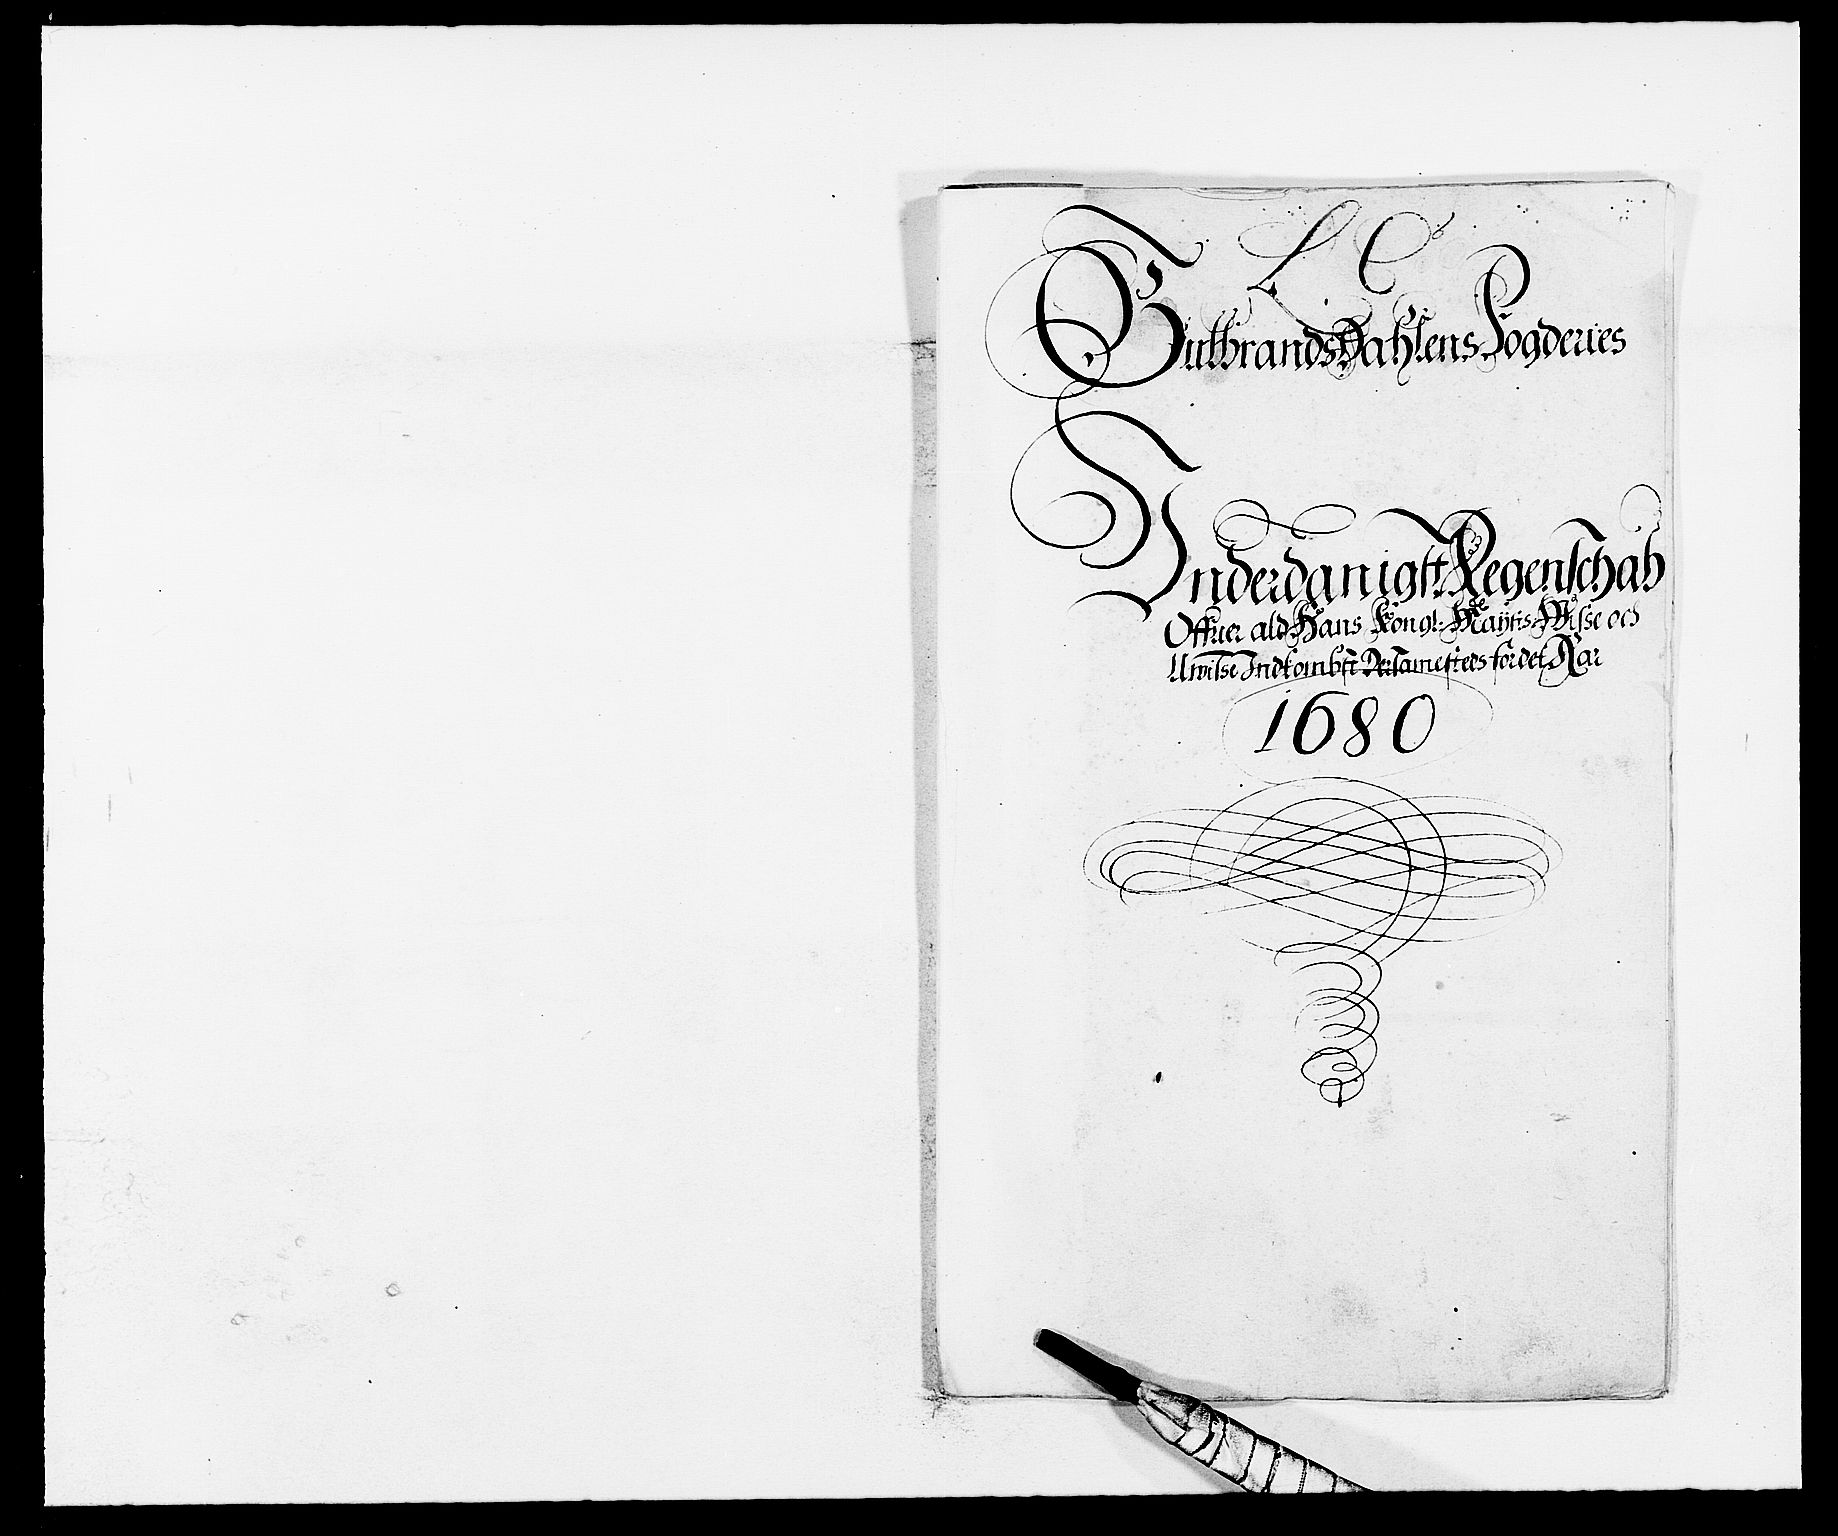 L C
GutbrandsDahlens Fogderies
Vnderdanigtt Regenschab
Offuer ald Hans Kongl: Maÿtts Wisse och
Uwisse Indkombst Dersamesteds for det Aar
1680